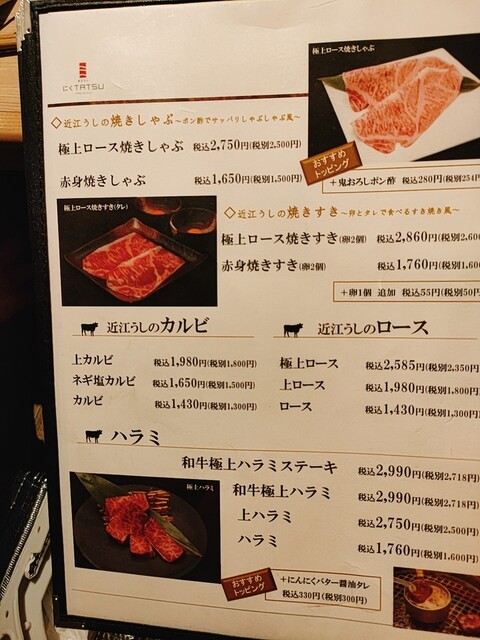 極上ロース焼きしゃぶ
にくTATSU
◇近江うしの焼きしゃぶ～ポン酢でサッパリしゃぶしゃぶ風～
極上ロース焼きしゃぶ 税込2,750円(税別2,500円)
赤身焼きしゃぶ 税込1,650円(税別1,500円)
おすすめ
トッピング
+鬼おろしポン酢 税込280円(税別254円
極上ロース焼きすき(タレ)
◇近江うしの焼きすき～卵とタレで食べるすき焼き風～
極上ロース焼きすき(卵2個) 税込2,860円(税別2,600
赤身焼きすき(卵2個) 税込1,760円(税別1,600
+卵1個 追加 税込55円(税別50円
近江うしのカルビ
上カルビ 税込1,980円(税別1,800円)
ネギ塩カルビ 税込1,650円(税別1,500円)
カルビ 税込1,430円(税別1,300円)
近江うしのロース
極上ロース 税込2,585円(税別2,350円)
上ロース 税込1,980円(税別1,800円)
ロース 税込1,430円(税別1,300円)
ハラミ
極上ハラミ
和牛極上ハラミステーキ 税込2,990円(税別2,718円)
和牛極上ハラミ 税込2,990円(税別2,718円)
上ハラミ 税込2,750円(税別2,500円)
ハラミ 税込1,760円(税別1,600円)
おすすめ
トッピング
+にんにくバター醤油タレ
税込330円(税別300円)